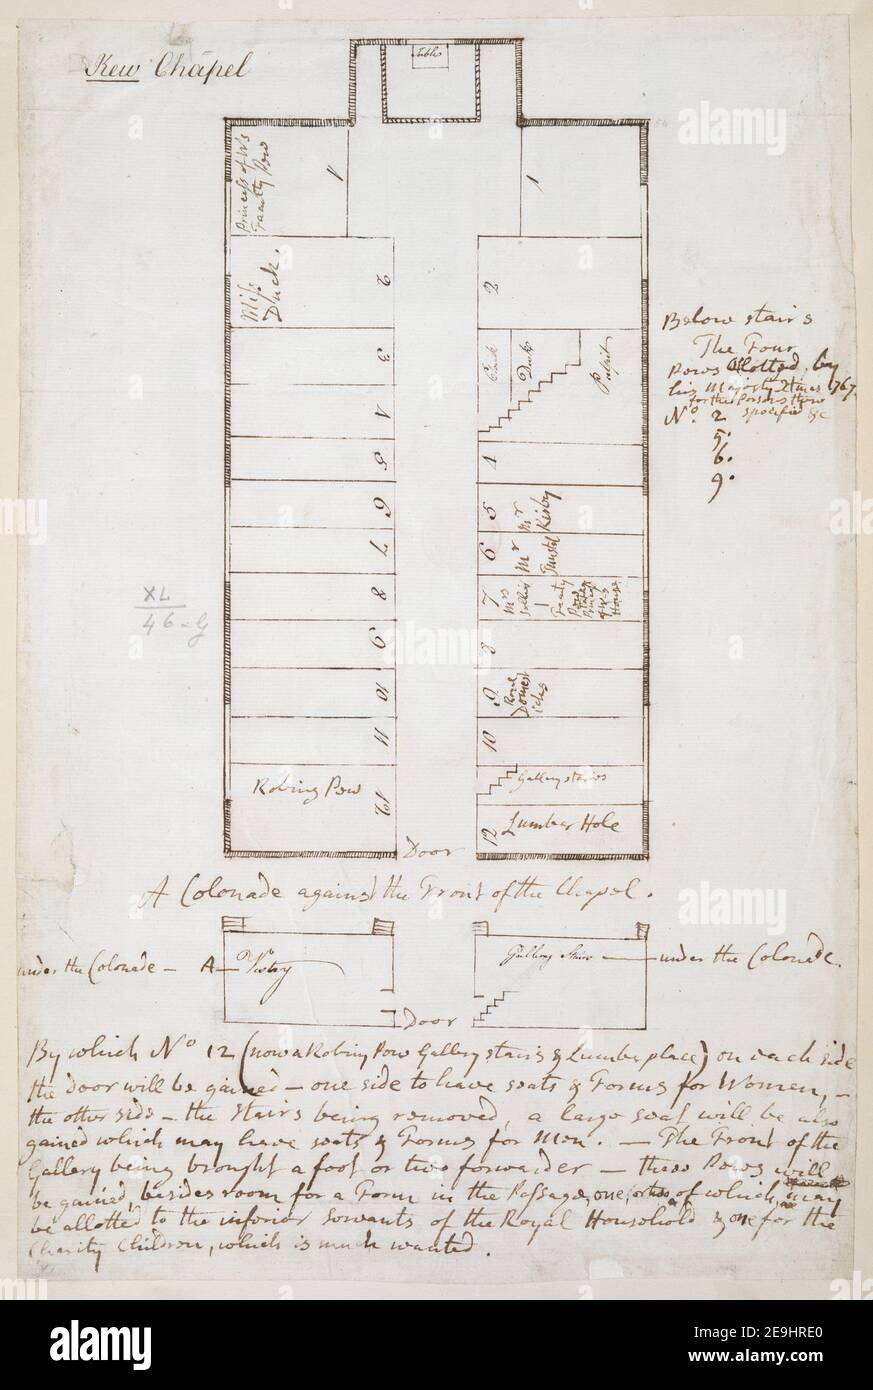 Kew Chapel
Table
Princess of W's
Family Pew
1
1
Miss
Duck.
2
2
3
Clerk
Desk
Pulpit
4
4
5
5
Mr
Kirby
6
6
Mr
7
7
Mrs
Family
House
8
8
9
9
Royal
Domest
icks
10
10
11
Gallery stairs
Robing Pew
12
12
Lumber Hole
Door
Below stairs
The Four
Pews Allotted by
his Majesty Xtmas 1767.
for the Persons there
specified &c
No. 2
5.
6.
9.
XL
46-G
A Colonade against the Front of the Chapel.
under the Colonade - A - Vestry
Gallery Stairs - under the Colonade.
Door
By which No 12 (now a Robing Pew Gallery stairs & Lumber place) on each side
the door will be gained - one side to have seats & Forms for Women, -
the other side - the Stairs being removed, a large seat will be also
gained which may have seats & Forms for Men. - The Front of the
Gallery being brought a foot or two forwarder - three Pews will
be gained, besides room for a Form in the Passage, one of which, may
be allotted to the inferior servants of the Royal Household & one for the
Charity Children, which is much wanted.
alamy
alamy
alamy
www.alamy.com
Image ID: 2E9HRE0